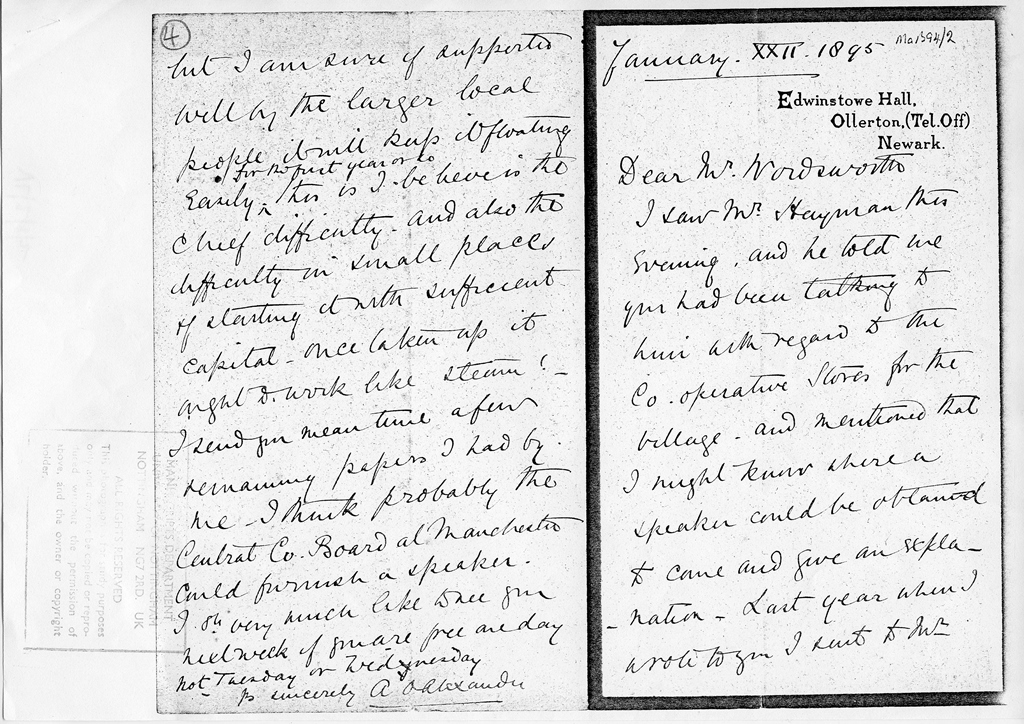 4
but I am sure if supported
well by the larger local
people it will keep it floating
for the first year or so
Easily, this is I believe is the
Chief difficulty - and also the
difficulty in small places
of starting it with sufficient
capital - once taken up it
ought to work like steam! -
I send you mean time a few
remaining papers I had by
me - I think probably the
Central Co. Board at Manchester
could furnish a speaker.
I shd very much like to see you
next week if you are free one day
not Tuesday or Wednesday
Yrs sincerely A Alexander
Ma 1394/2
January. XXII. 1895
Edwinstowe Hall,
Ollerton, (Tel. Off)
Newark.
Dear Mr. Wordsworth
I saw Mr. Hayman this
Evening, and he told me
you had been talking to
him with regard to the
Co. operative Stores for the
village - and mentioned that
I might know where a
speaker could be obtained
to come and give an expla-
-nation - Last year when I
wrote to you I sent to Mr
MANUSCRIPTS DEPARTMENT
NOTTINGHAM NG7 2RD UK
ALL RIGHTS RESERVED
purposes
or repro-
the permission of
and the owner or copyright
holder.